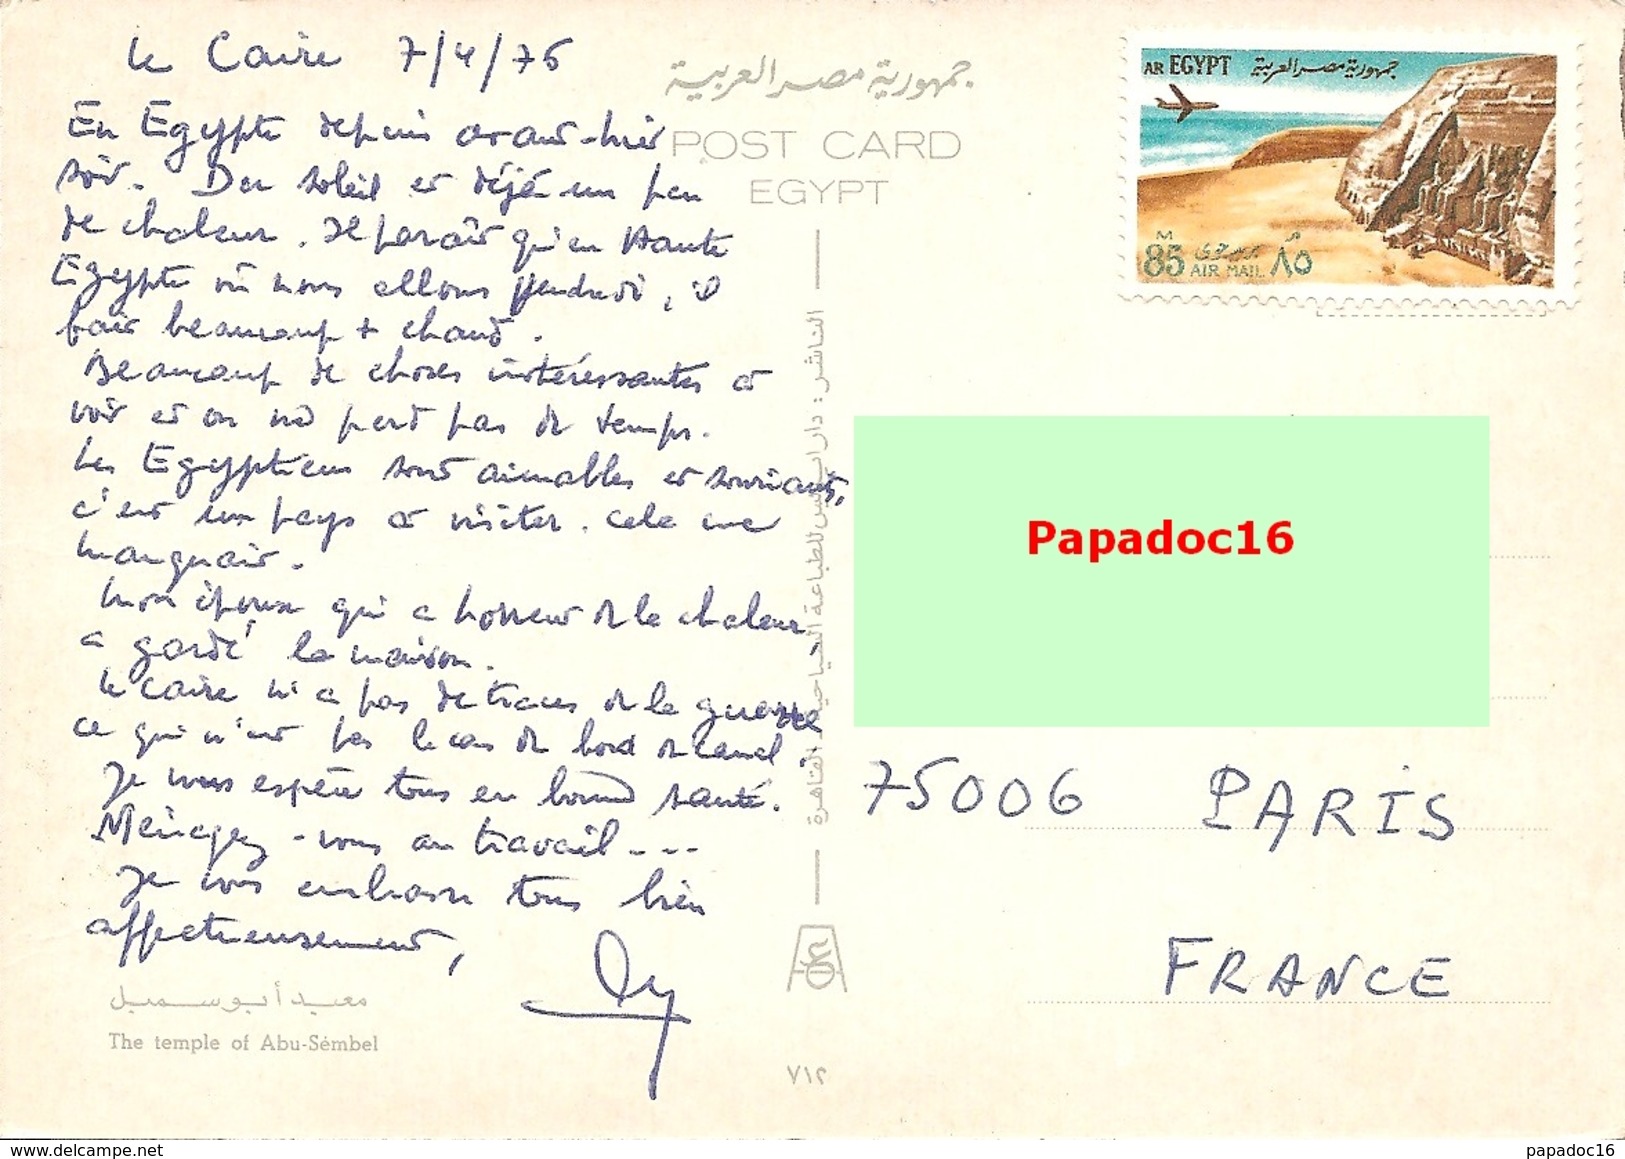 le Caire 7/4/76
En Egypte depuis avant-hier
soir. Du soleil et déjà un peu
de chaleur. Il paraît qu'en Haute
Egypte où nous allons vendredi, il
fait beaucoup + chaud.
Beaucoup de choses intéressantes à
voir et on ne perd pas de temps.
Les Egyptiens sont aimables et souriants,
c'est un pays à visiter. Cela me
manquait.
Mon époux qui a horreur de la chaleur
a gardé la maison.
Le Caire n'a pas de traces de la guerre
ce qui n'est pas le cas du bord du canal.
Je vous espère tous en bonne santé.
Ménagez-vous au travail ---
Je vous embrasse tous bien
affectueusement,
معبد أبو سمبل
The temple of Abu-Sémbel
جمهورية مصر العربية
POST CARD
EGYPT
الناشر: دار للطباعة السياحية القاهرة
٧١٢
AR EGYPT جمهورية مصر العربية
M م
85 بريد جوى ٨٥
AIR MAIL
Papadoc16
75006 PARIS
FRANCE
papadoc16